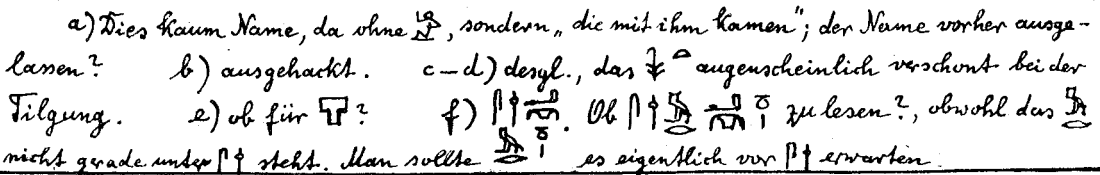 a) Dies kaum Name, da ohne 𓀔, sondern „die mit ihm kamen"; der Name vorher ausge-
lassen? b) ausgehackt. c–d) desgl., das 𓇓𓏏 augenscheinlich verschont bei der
Tilgung. e) ob für ? f) 𓋴𓌂. Ob 𓋴𓌂 zu lesen?, obwohl das
nicht gerade unter 𓋴𓌂 steht. Man sollte es eigentlich vor 𓋴𓌂 erwarten.